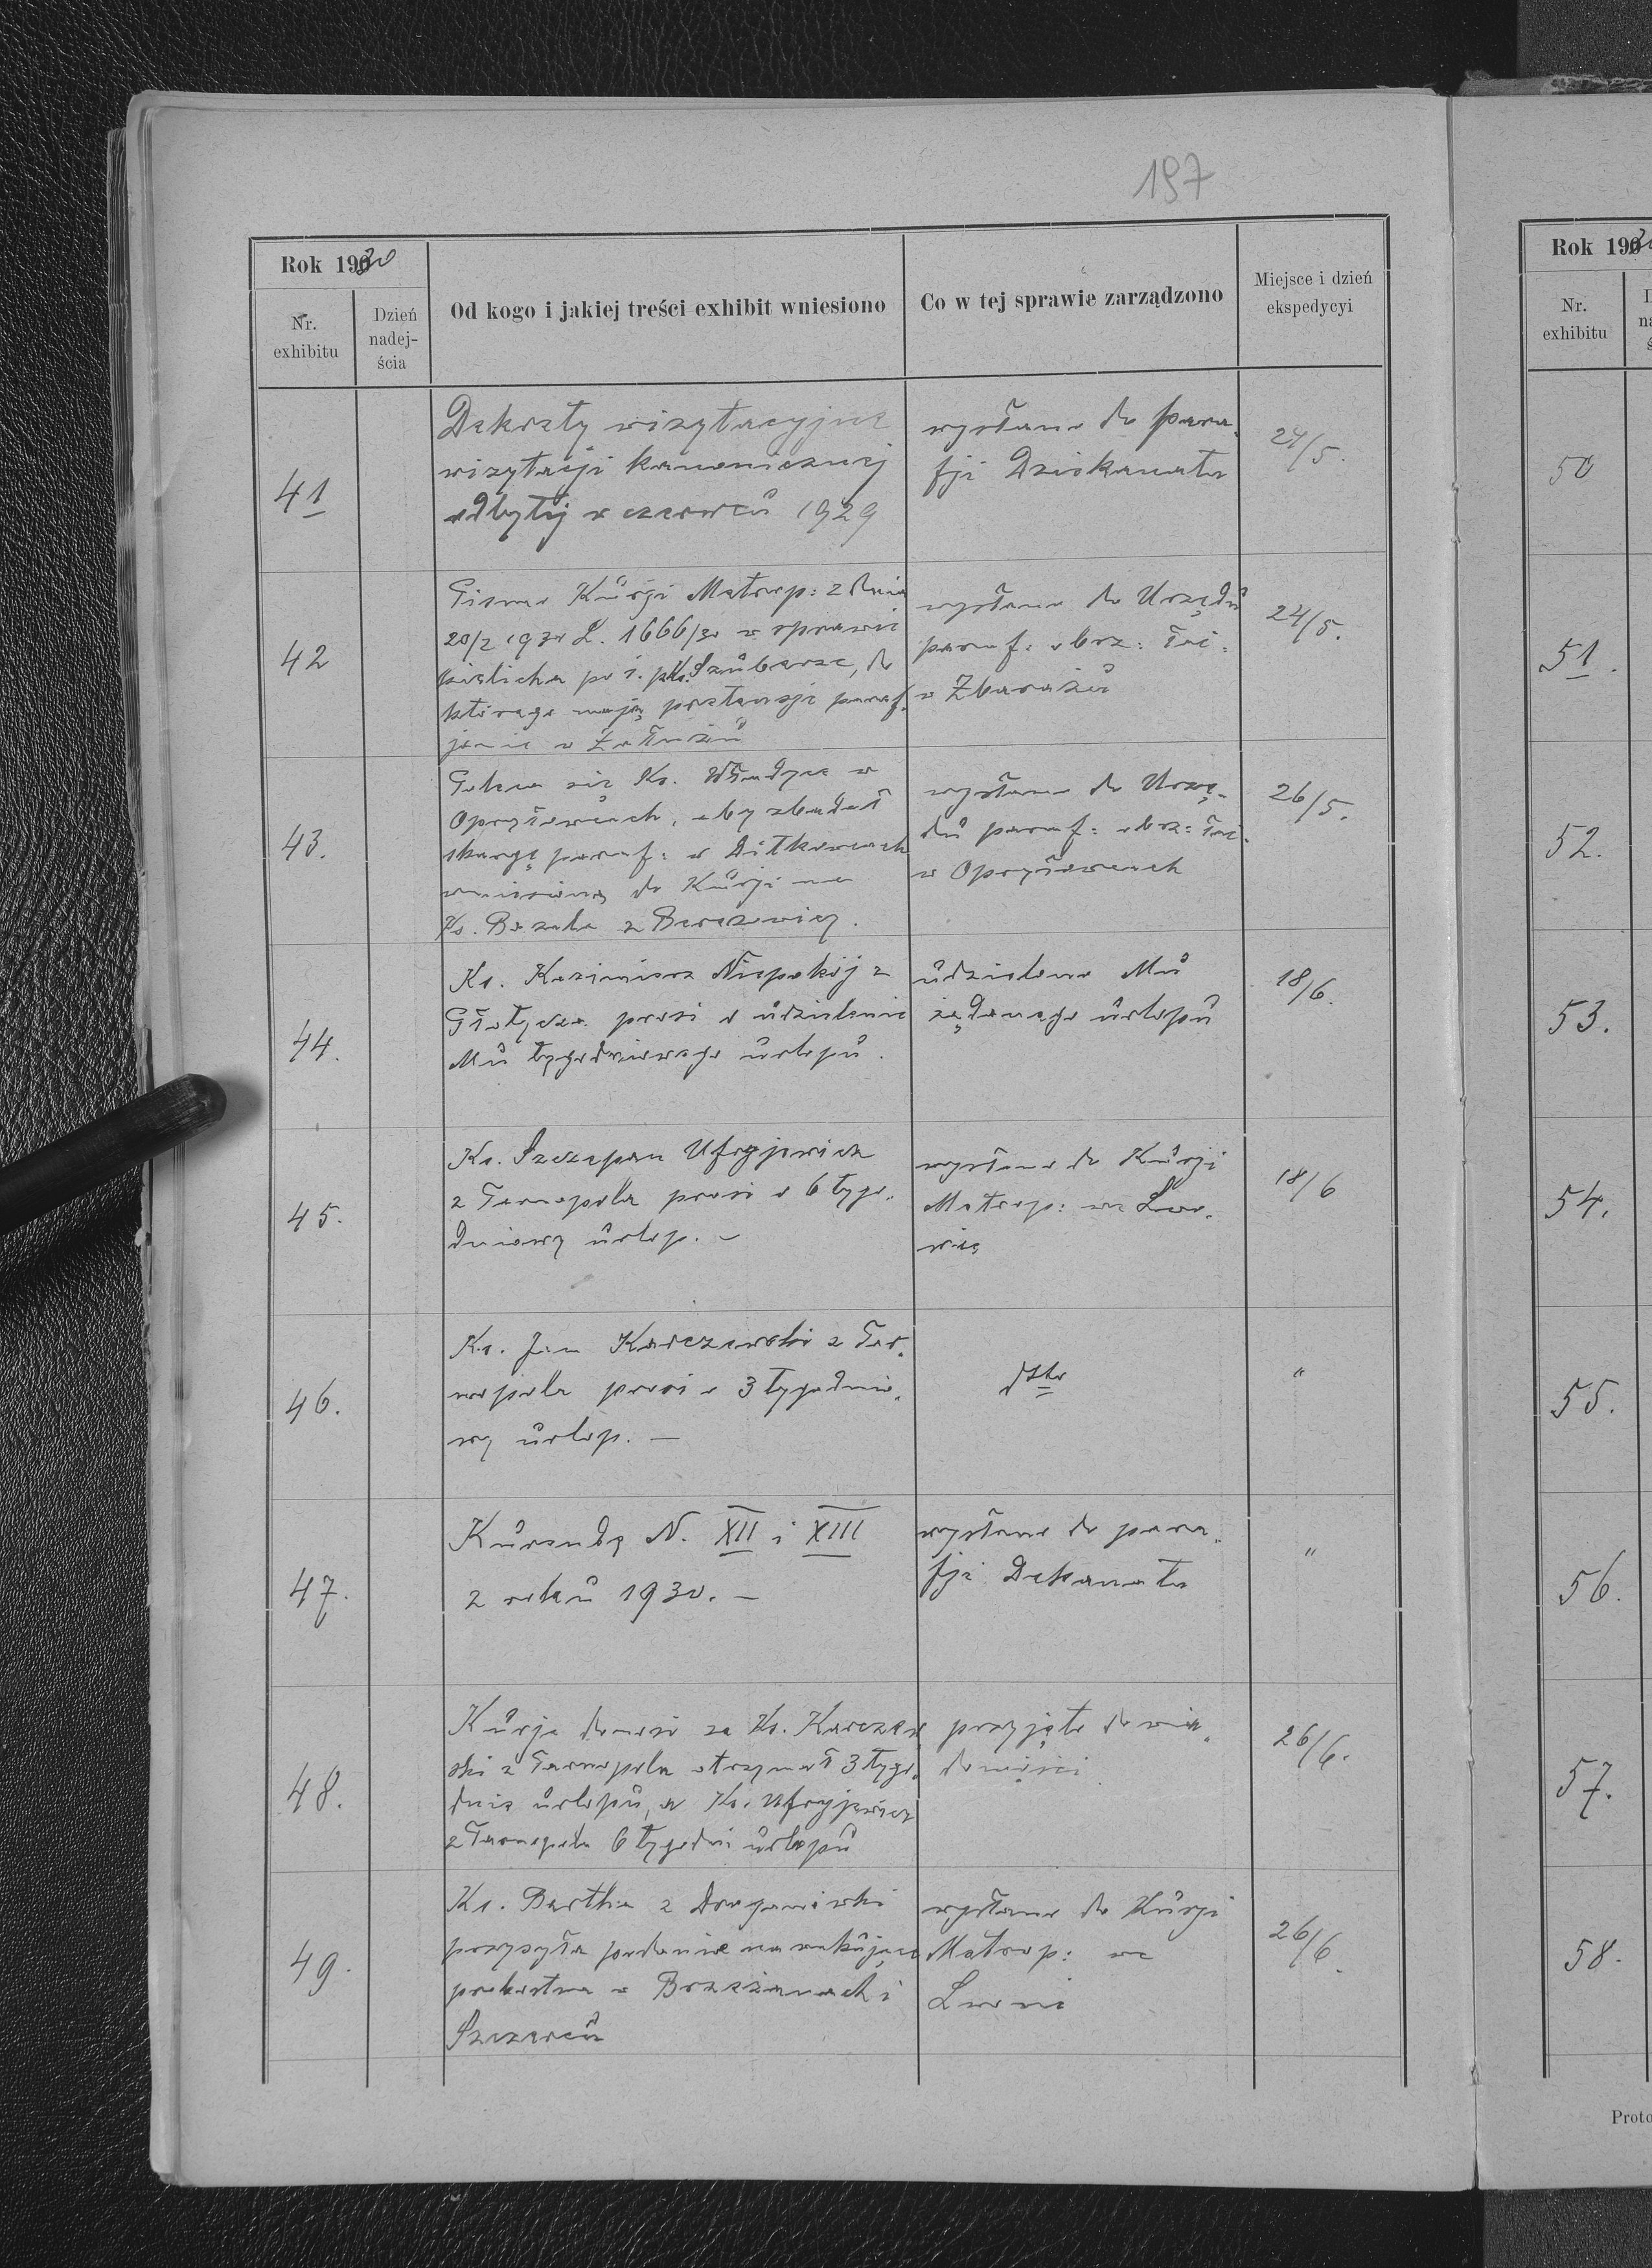 197
Rok 1930
Nr. exhibitu
Dzień nadej-ścia
Od kogo i jakiej treści exhibit wniesiono
Co w tej sprawie zarządzono
Miejsce i dzień ekspedycyi
41
Dekrety wizytacyjne
wizytacji kanonicznej
odbytej w czerwcu 1929
wysłano do para-
fji Dziekanatu
24/5.
42
Pismo Kurji Metrop: z dnia
20/2 1930 L. 1666/30 w sprawie
kielicha po ś. p. Ks. Szubarze, do
którego mają pretensje paraf-
janie w Załużu
wysłano do Urzędu
paraf: obrz: łać:
w Zbarażu
24/5.
43.
Poleca się Ks. Władyce w
Opryłowcach, aby zbadał
skargę paraf: w Ditkowcach
wniesioną do Kurji na
Ks. Bozela z Berezowicy.
wysłano do Urzę-
du paraf: obrz: łać.
w Opryłowcach
26/5.
44.
Ks. Kazimierz Niepokój z
Płotycza prosi o udzielenie
Mu tygodniowego urlopu.
udzielono Mu
żądanego urlopu
18/6.
45.
Ks. Szczepan Ufryjewicz
z Tarnopola prosi o 6 tygo-
dniowy urlop. –
wysłano do Kurji
Metrop: we Lwo-
wie
18/6
46.
Ks. Jan Karczewski z Tar-
nopola prosi o 3 tygodnio-
wy urlop. —
dtto
"
47.
Kurendę N. XII i XIII
z roku 1930. —
wysłano do para-
fji Dekanatu
"
48.
Kurja donosi że Ks. Karczew
ski z Tarnopola otrzymał 3 tygo-
dnie urlopu, a Ks. Ufryjewicz
z Tarnopola 6 tygodni urlopu
przyjęto do wia-
domości
26/6.
49.
Ks. Bartha z Draganówki
przysyła podanie na wakujące
probostwa w Brzeżanach i
Szczercu
wysłano do Kurji
Metrop: we
Lwowie
26/6.
Rok 193
Nr. exhibitu
50
51.
52.
53.
54.
55.
56.
57.
58.
Proto